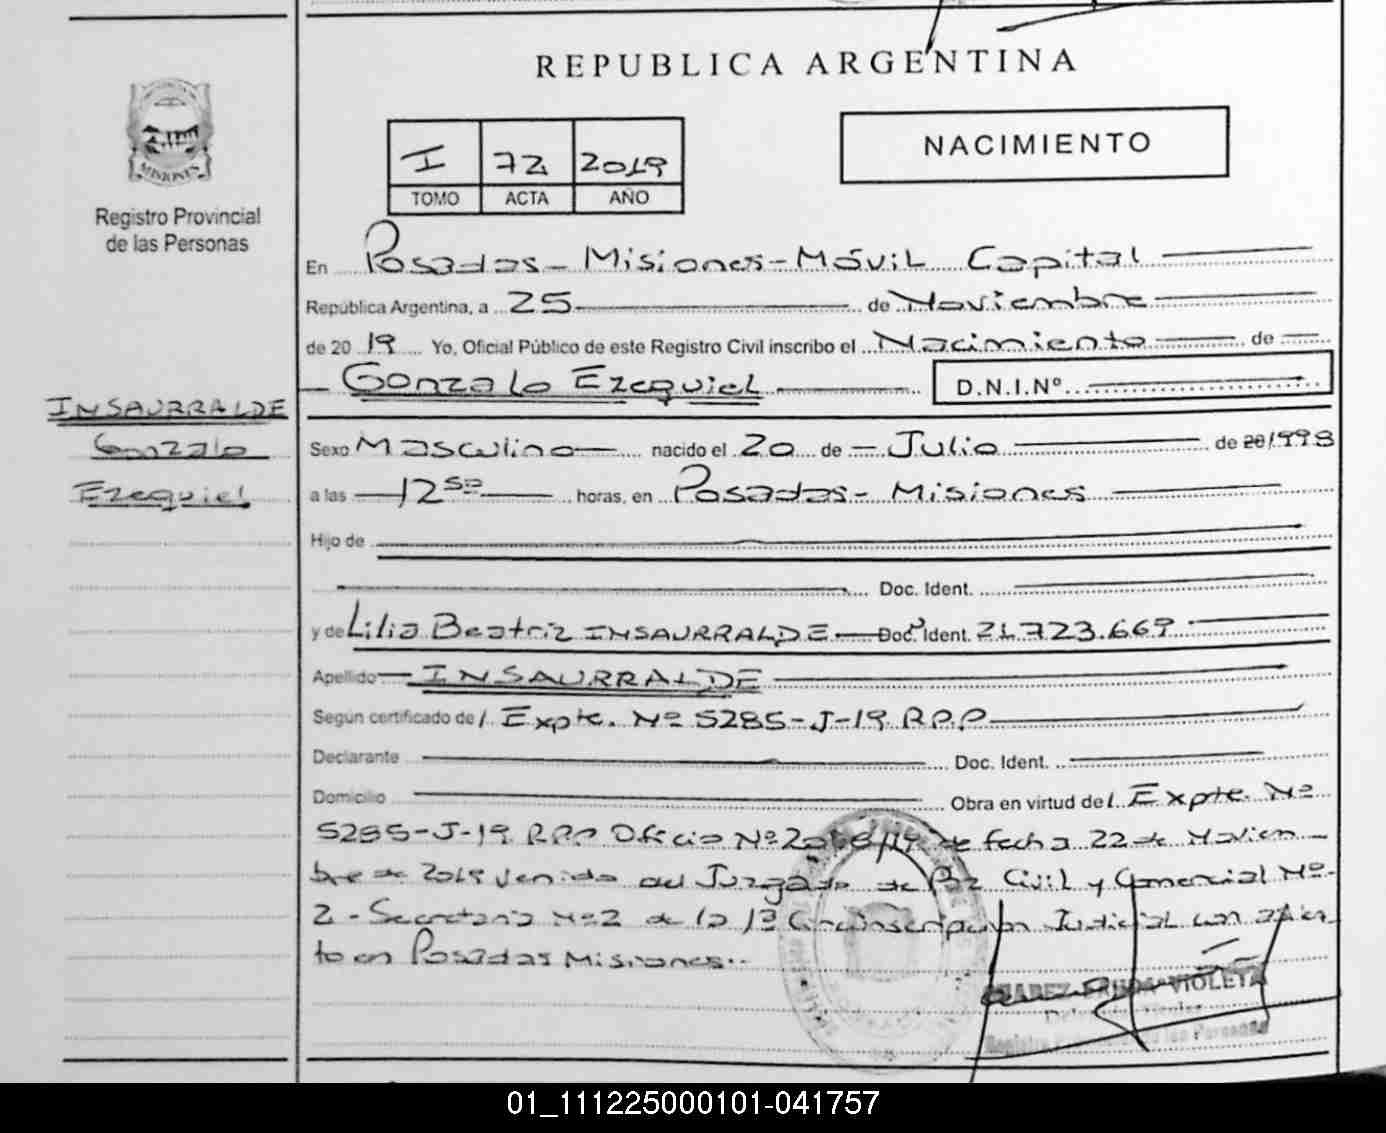 REPUBLICA ARGENTINA
I 72 2019
TOMO ACTA AÑO
NACIMIENTO
MISIONES
Registro Provincial
de las Personas
En Posadas - Misiones - Móvil Capital
República Argentina, a 25 de Noviembre
de 2019 Yo, Oficial Público de este Registro Civil inscribo el Nacimiento de
Gonzalo Ezequiel D.N.I.Nº
INSAURRALDE
Gonzalo
Ezequiel
Sexo Masculino nacido el 20 de Julio de 20 1998
a las 12 50 horas, en Posadas - Misiones
Hijo de
Doc. Ident.
y de Lilia Beatriz INSAURRALDE Doc. Ident. 21.723.669
Apellido INSAURRALDE
Según certificado de/ Expte. Nº 5285-J-19 R.P.P
Declarante Doc. Ident.
Domicilio Obra en virtud de/ Expte. Nº
5285-J-19 R.P.P Oficio Nº de fecha 22 de Noviem
bre de 2019 venido del Juzgado de Civil y Comercial Nº
2 - Secretaria Nº 2 de la 1ª Circunscripción Judicial con asien
to en Posadas Misiones..
VIOLETA
Registro Provincial de las Personas
01_111225000101-041757